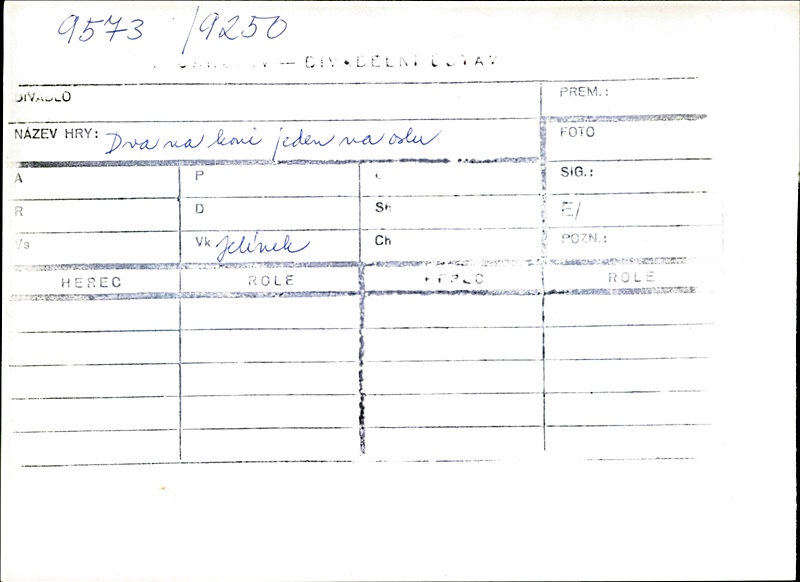 9573 /9250
— DIVADELNÍ ÚSTAV
DIVADLO
PREM.:
NÁZEV HRY: Dva na koni jeden na oslu
FOTO
A P SIG.:
R D Sh E/
Vs Vk Jelínek Ch POZN.:
HEREC ROLE HEREC ROLE